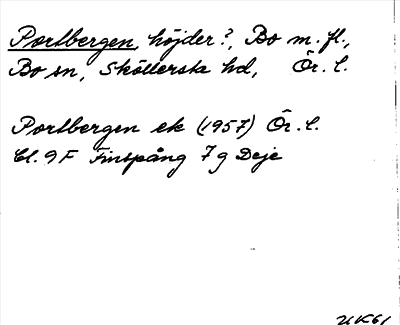 Portbergen, höjder?, Bo m.fl.,
Bo sn, Sköllersta hd, Ör. l.
Portbergen ek (1957) Ör. l.
Bl. 9F Finspång 7g Deje